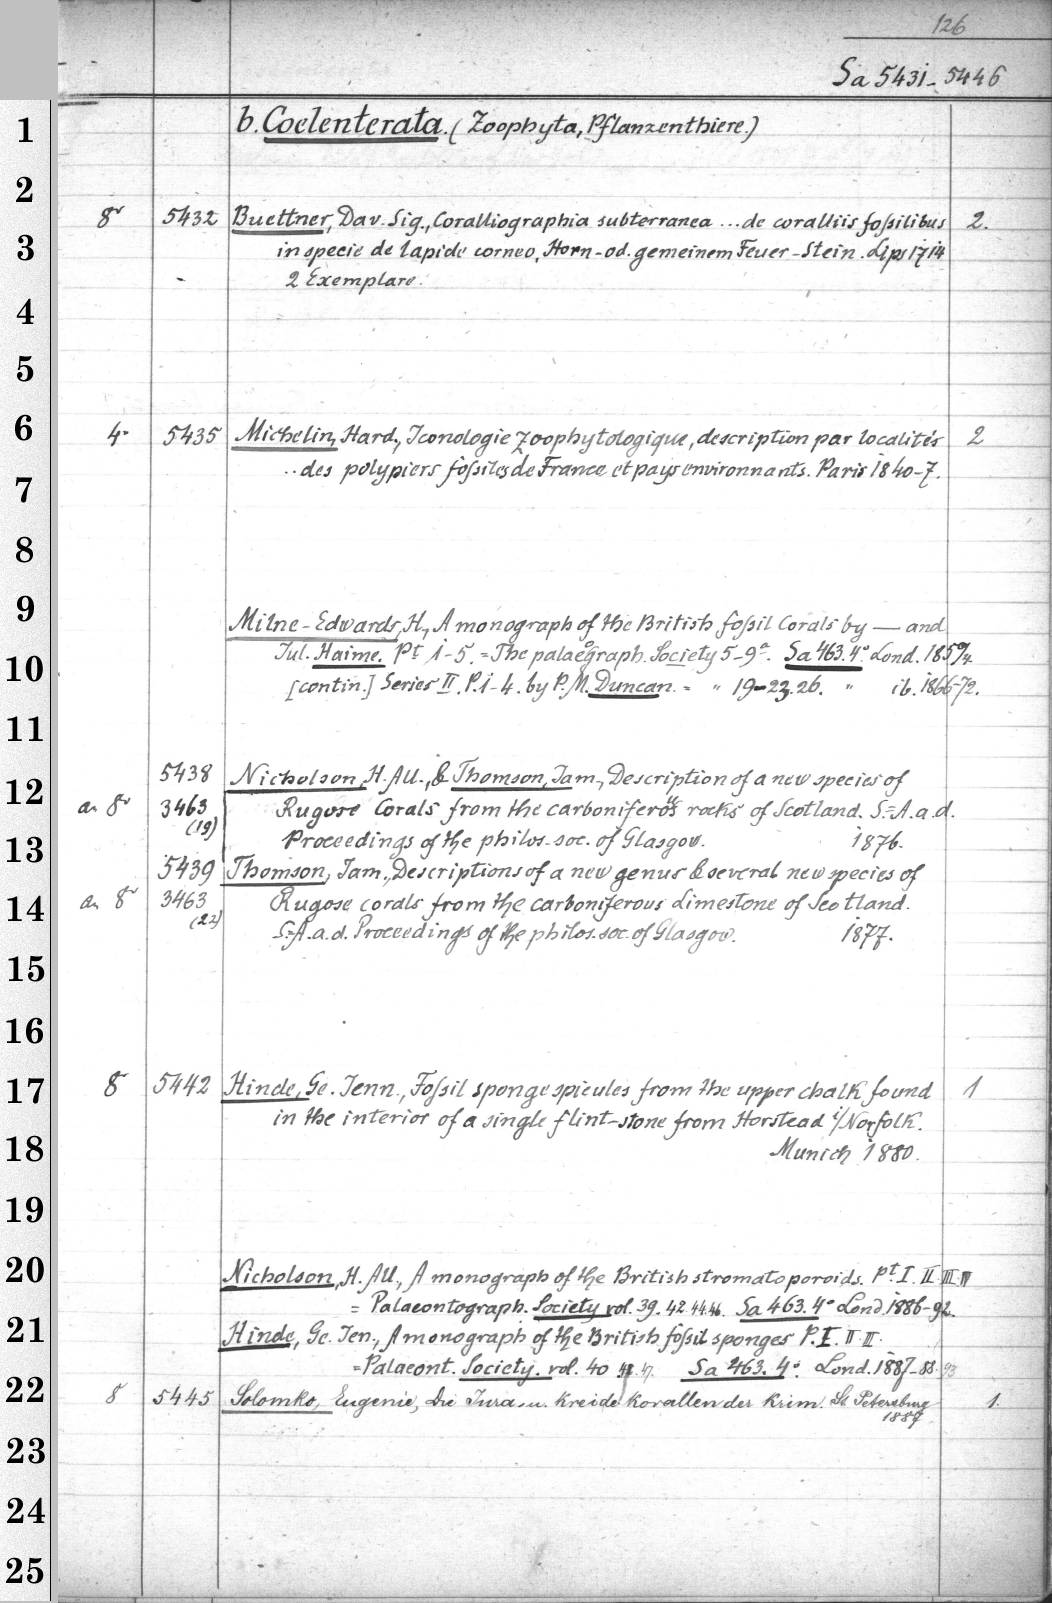 126
Sa 5431-5446
1
b. Coelenterata. (Zoophyta, Pflanzenthiere.)
2
8º 5432 Buettner, Dav. Sig., Coralliographia subterranea ... de coralliis foſsilibus 2.
3
in specie de lapide corneo, Horn-od. gemeinem Feuer-Stein. Lips 1714
2 Exemplare.
4
5
6
4º 5435 Michelin, Hard., Iconologie zoophytologique, description par localités 2
.. des polypiers foſsiles de France et pays environnants. Paris 1840-7.
7
8
9
Milne-Edwards, H., A monograph of the British foſsil Corals by — and
10
Jul. Haime. Pt. 1-5. = The palaeograph. Society 5-9ª. Sa 463.4º Lond. 1850/4
[contin.] Series II. P. 1-4. by P. M. Duncan. = " 19-23. 26. " ib. 1866-72.
11
5438 Nicholson, H. All., & Thomson, Jam., Description of a new species of
12
an 8º 3463 Rugose Corals from the carboniferous rocks of Scotland. S.=A. a. d.
(19)
Proceedings of the philos. soc. of Glasgow. 1876.
13
5439 Thomson, Jam., Descriptions of a new genus & several new species of
14
an 8º 3463 Rugose corals from the carboniferous Limestone of Scotland.
(22)
S.=A. a. d. Proceedings of the philos. soc. of Glasgow. 1877.
15
16
17
8º 5442 Hinde, Ge. Jenn., Foſsil sponge spicules from the upper chalk found 1
in the interior of a single flint-stone from Horstead i/Norfolk.
18
Munich 1880.
19
20
Nicholson, H. All., A monograph of the British stromatoporoids. Pt. I. II. III. IV
= Palaeontograph. Society vol. 39. 42. 44. 46. Sa 463.4º Lond. 1886-92.
21
Hinde, Ge. Jen., A monograph of the British foſsil sponges P. I. II. III.
=Palaeont. Society. vol. 40 47. Sa 463. 4º. Lond. 1887-88. 93
22
8 5445 Solomko, Eugenie, Die Jura- u. Kreidekorallen der Krim. St. Petersburg 1.
1887
23
24
25